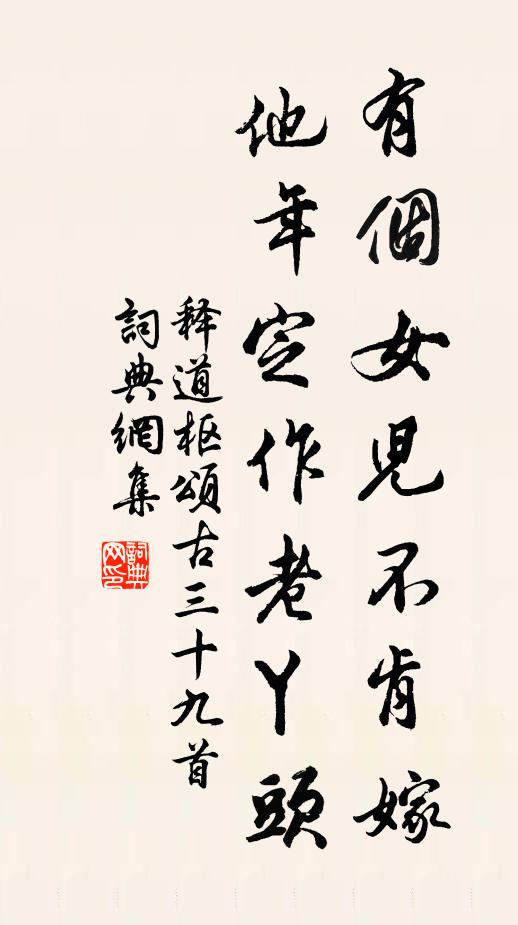 有個女児不肯嫁
他年定作老丫頭
释道枢頌古三十九首
詞典網集
詞典网印